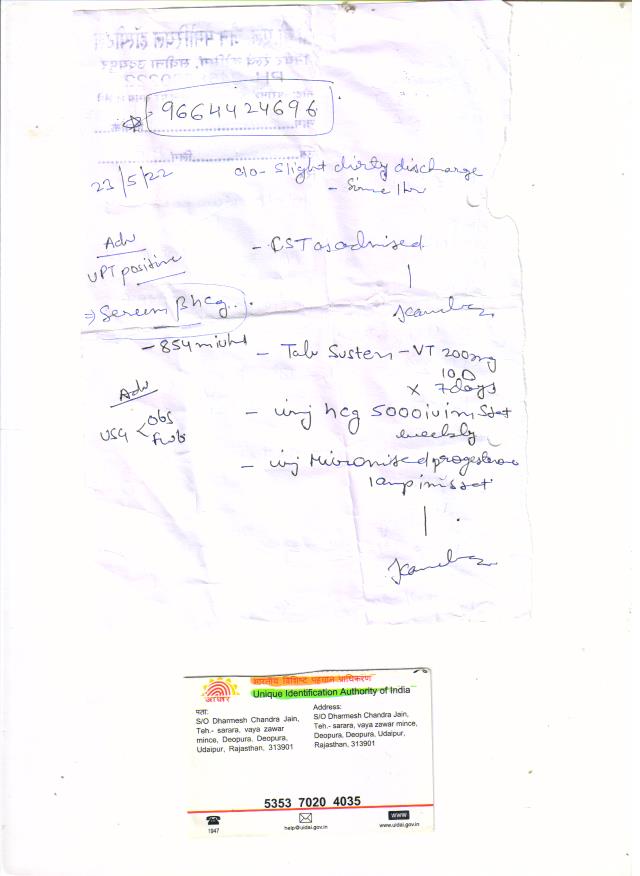 9664424696
23/5/22
c/o- Slight dirty discharge
- Since 1hr
Adv
UPT positive
- CST as advised
⇒ Sereem βhcg..
- 854
- Tab Susten - VT 200mg
10D
x 7days
Adv
USG < obs
- inj hcg 5000 iu im
weekly
- inj Micronised progesterone
1amp im
भारतीय विशिष्ट पहचान प्राधिकरण
Unique Identification Authority of India
आधार
पता:
S/O Dharmesh Chandra Jain,
Teh.- sarara, vaya zawar
mince, Deopura, Deopura,
Udaipur, Rajasthan, 313901
Address:
S/O Dharmesh Chandra Jain,
Teh.- sarara, vaya zawar mince,
Deopura, Deopura, Udaipur,
Rajasthan, 313901
5353 7020 4035
1947
help@uidai.gov.in
WWW
www.uidai.gov.in